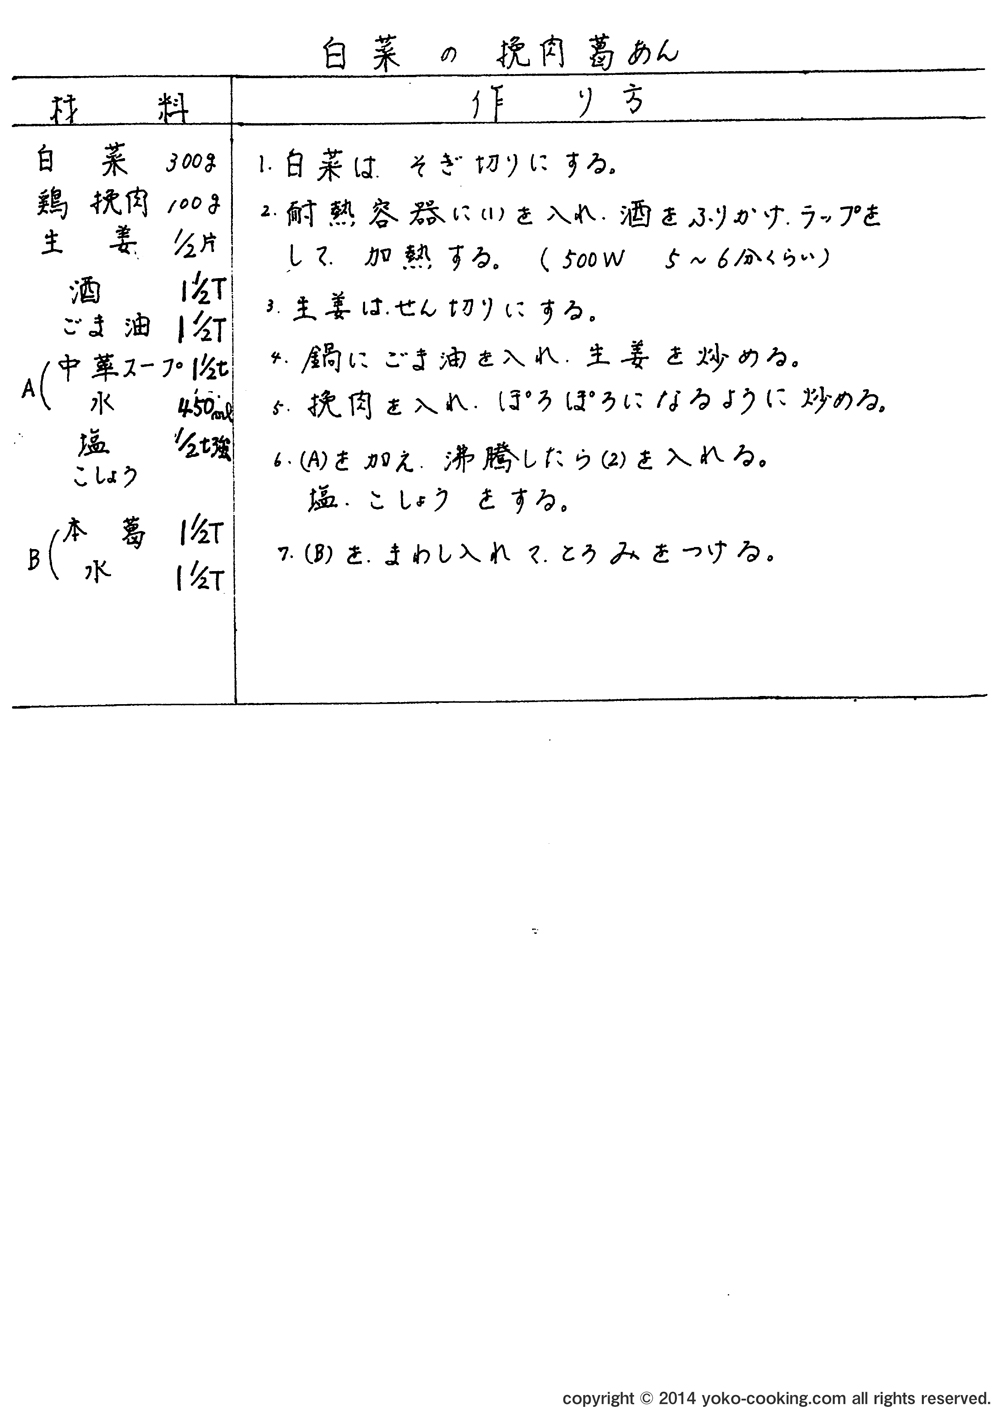 白菜の挽肉葛あん
材料
作り方
白菜 300g
鶏挽肉 100g
生姜 1/2片
酒 1 1/2T
ごま油 1 1/2T
A(中華スープ 1 1/2t
水 450ml
塩 1/2t強
こしょう
B(本葛 1 1/2T
水 1 1/2T
1. 白菜は、そぎ切りにする。
2. 耐熱容器に(1)を入れ、酒をふりかけ、ラップを
して、加熱する。(500W 5～6分くらい)
3. 生姜は、せん切りにする。
4. 鍋にごま油を入れ、生姜を炒める。
5. 挽肉を入れ、ぽろぽろになるように炒める。
6. (A)を加え、沸騰したら(2)を入れる。
塩、こしょうをする。
7. (B)を、まわし入れて、とろみをつける。
copyright © 2014 yoko-cooking.com all rights reserved.